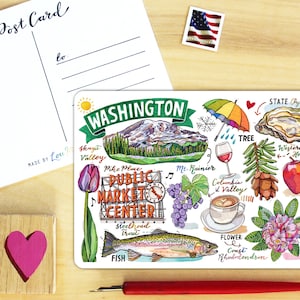 Post Card
to
MADE BY
WASHINGTON
STATE
Skagit
Valley
Mt. Rainier
TREE
Pike Place
PUBLIC
MARKET
CENTER
Columbia
Valley
Steelhead
Trout
FISH
FLOWER
Coast
Rhododendron